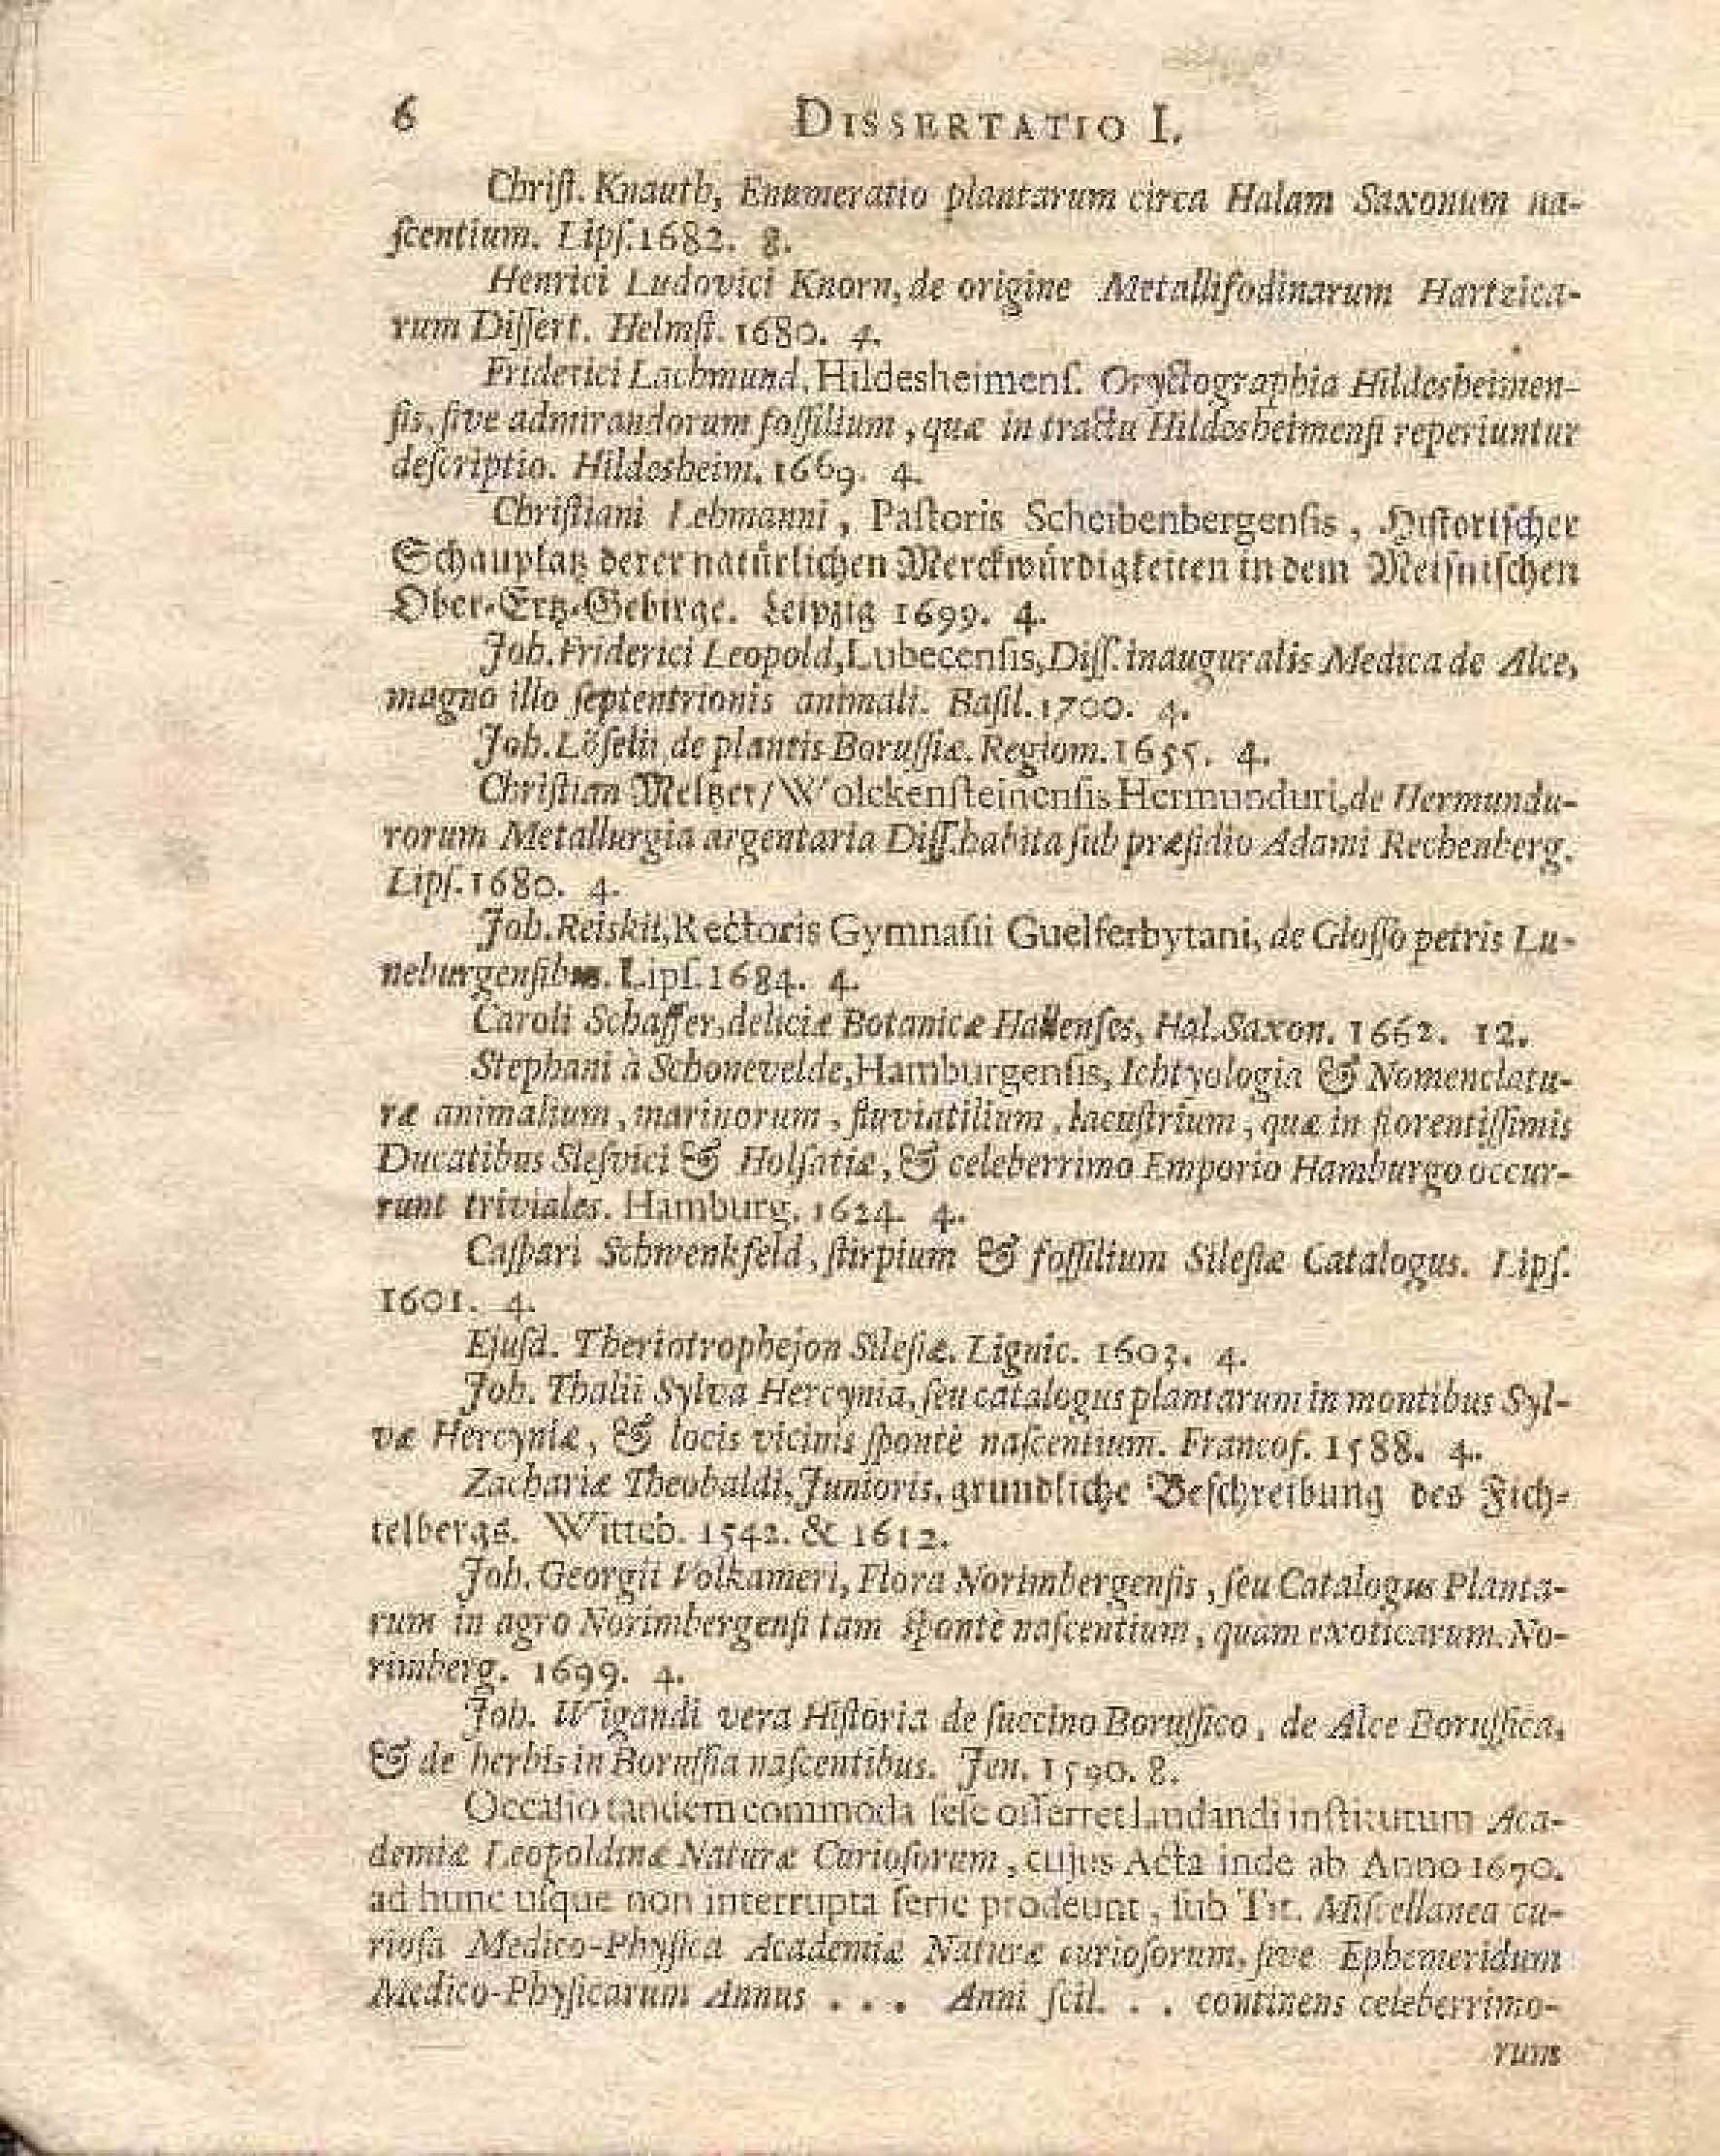 6 DISSERTATIO I.
Chriſt. Knauth, Enumeratio plantarum circa Halam Saxonum na-
ſcentium. Lipſ. 1682. 8.
Henrici Ludovici Knorn, de origine Metallifodinarum Hartzica-
rum Diſſert. Helmſt. 1680. 4.
Friderici Lachmund, Hildesheimenſ. Oryctographia Hildesheimen-
ſis, ſive admirandorum foſſilium, quæ in tractu Hildesheimenſi reperiuntur
deſcriptio. Hildesheim. 1669. 4.
Chriſtiani Lehmanni, Paſtoris Scheibenbergenſis, Hiſtoriſcher
Schauplatz derer natürlichen Merckwürdigkeiten in dem Meiſniſchen
Ober-Ertz-Gebirge. Leipzig 1699. 4.
Joh. Friderici Leopold, Lubecenſis, Diſſ. inauguralis Medica de Alce,
magno illo ſeptentrionis animali. Baſil. 1700. 4.
Joh. Löſelii, de plantis Boruſſiæ. Regiom. 1655. 4.
Chriſtian Meltzer/ Wolckenſteinenſis Hermunduri, de Hermundu-
rorum Metallurgia argentaria Diſſ. habita ſub præſidio Adami Rechenberg.
Lipſ. 1680. 4.
Joh. Reiskii, Rectoris Gymnaſii Guelferbytani, de Gloſſopetris Lu-
neburgenſibus. Lipſ. 1684. 4.
Caroli Schaffer, deliciæ Botanicæ Hallenſes, Hal. Saxon. 1662. 12.
Stephani à Schonevelde, Hamburgenſis, Ichtyologia & Nomenclatu-
ræ animalium, marinorum, fluviatilium, lacuſtrium, quæ in florentiſſimis
Ducatibus Sleſvici & Holſatiæ, & celeberrimo Emporio Hamburgo occur-
runt triviales. Hamburg. 1624. 4.
Caſpari Schwenkfeld, ſtirpium & foſſilium Sileſiæ Catalogus. Lipſ.
1601. 4.
Ejuſd. Theriotrophejon Sileſiæ. Lignic. 1603. 4.
Joh. Thalii Sylva Hercynia, ſeu catalogus plantarum in montibus Syl-
væ Hercyniæ, & locis vicinis ſpontè naſcentium. Francof. 1588. 4.
Zachariæ Theobaldi, Junioris, grundliche Beſchreibung des Fich-
telbergs. Witteb. 1542. & 1612.
Joh. Georgii Volkameri, Flora Norimbergenſis, ſeu Catalogus Planta-
rum in agro Norimbergenſi tam ſpontè naſcentium, quàm exoticarum. No-
rimberg. 1699. 4.
Joh. Wigandi vera Hiſtoria de ſuccino Boruſſico, de Alce Boruſſica,
& de herbis in Boruſſia naſcentibus. Jen. 1590. 8.
Occaſio tandem commoda ſeſe offerret laudandi inſtitutum Aca-
demiæ Leopoldinæ Naturæ Curioſorum, cujus Acta inde ab Anno 1670.
ad hunc uſque non interrupta ſerie prodeunt, ſub Tit. Miſcellanea cu-
rioſa Medico-Phyſica Academiæ Naturæ curioſorum, ſive Ephemeridum
Medico-Phyſicarum Annus . . . Anni ſcil. . . continens celeberrimo-
rum